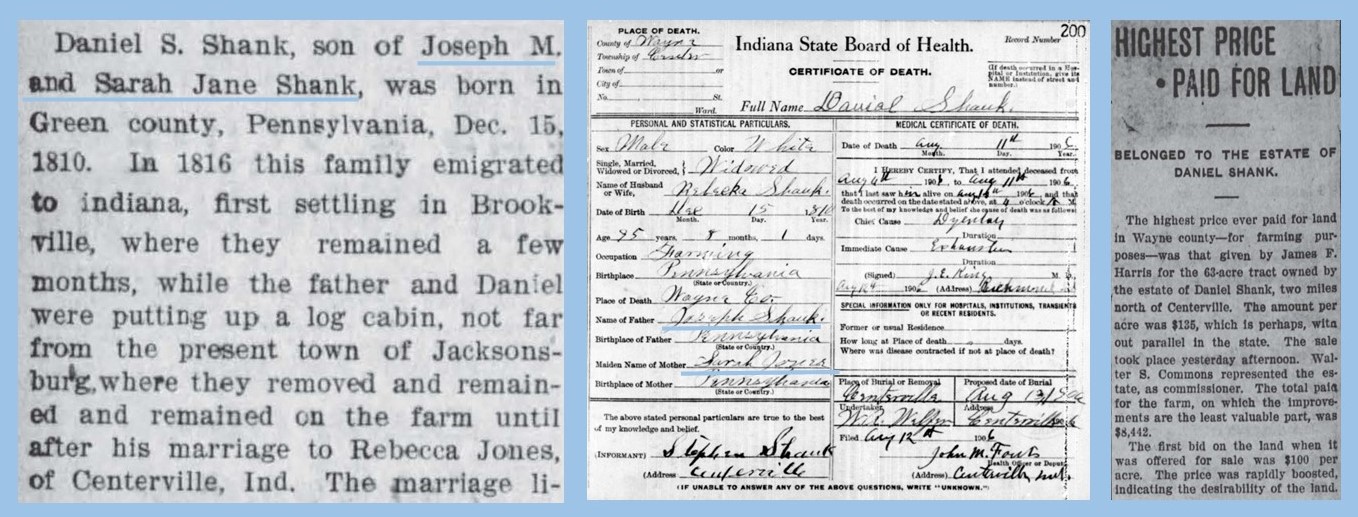 Daniel S. Shank, son of Joseph M.
and Sarah Jane Shank, was born in
Green county, Pennsylvania, Dec. 15,
1810. In 1816 this family emigrated
to indiana, first settling in Brook-
ville, where they remained a few
months, while the father and Daniel
were putting up a log cabin, not far
from the present town of Jacksons-
burg, where they removed and remain-
ed and remained on the farm until
after his marriage to Rebecca Jones,
of Centerville, Ind. The marriage li-
PLACE OF DEATH.
County of Wayne
Township of Center
Town of or
City of
No. St.
Ward.
Indiana State Board of Health.
CERTIFICATE OF DEATH.
Record Number 200
(If death occurred in a Hos-
pital or Institution, give its
NAME instead of street and
number.)
Full Name Danial Shank.
PERSONAL AND STATISTICAL PARTICULARS.
Sex Male Color White
Single, Married,
Widowed or Divorced, Widowed
Name of Husband
or Wife, Rebecke Shank.
Date of Birth Dec 15 1810
Month. Day. Year.
Age 95 years, 8 months, 1 days.
Occupation Farming
Birthplace Pennsylvania
(State or Country.)
Place of Death Wayne Co.
Name of Father Joseph Shank.
Birthplace of Father Pennsylvania
(State or Country.)
Maiden Name of Mother Sarah
Birthplace of Mother Pennsylvania
(State or Country.)
The above stated personal particulars are true to the best
of my knowledge and belief.
(INFORMANT) Stephen Shank
(Address) Centerville
MEDICAL CERTIFICATE OF DEATH.
Date of Death Aug 11th 1906
Month. Day. Year.
I HEREBY CERTIFY, That I attended deceased from
Aug 4th 1906 to Aug 11th 1906,
that I last saw him alive on Aug 1906 and that
death occurred on the date stated above, at o'clock M.
To the best of my knowledge and belief the cause of death was as follows:
Chief Cause
Duration
Immediate Cause Exhaustion
Duration
(Signed) J. E. King M. D.
190 (Address) Richmond
SPECIAL INFORMATION ONLY FOR HOSPITALS, INSTITUTIONS, TRANSIENTS
OR RECENT RESIDENTS.
Former or usual Residence
How long at Place of death days.
Where was disease contracted if not at place of death?
Place of Burial or Removal
Centerville
Proposed date of Burial
Aug 13 1906
Undertaker
Address
Centerville
Filed Aug 12th 1906
John M. Fouts
Health Officer or Deputy
(Address) Centerville Ind.
(IF UNABLE TO ANSWER ANY OF THE ABOVE QUESTIONS, WRITE "UNKNOWN.")
HIGHEST PRICE
PAID FOR LAND
BELONGED TO THE ESTATE OF
DANIEL SHANK.
The highest price ever paid for land
in Wayne county—for farming pur-
poses—was that given by James F.
Harris for the 63-acre tract owned by
the estate of Daniel Shank, two miles
north of Centerville. The amount per
acre was $135, which is perhaps, with
out parallel in the state. The sale
took place yesterday afternoon. Wal-
ter S. Commons represented the es-
tate, as commissioner. The total paid
for the farm, on which the improve-
ments are the least valuable part, was
$8,442.
The first bid on the land when it
was offered for sale was $100 per
acre. The price was rapidly boosted,
indicating the desirability of the land.